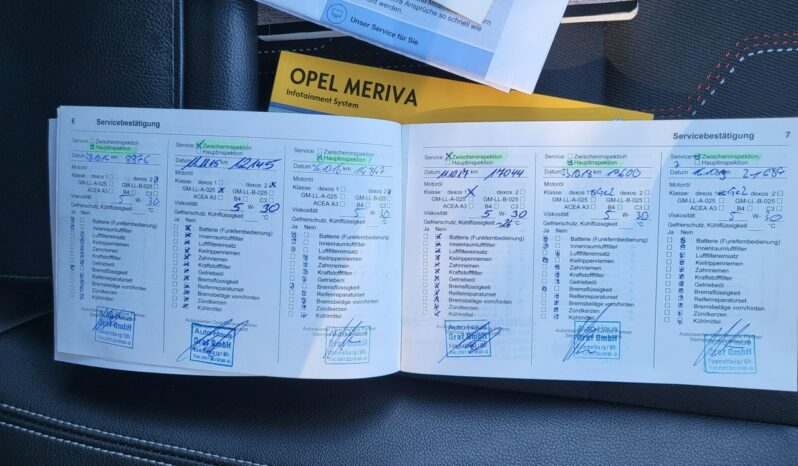 werden.
Ihre Ansprüche so schnell wie
Unser Service für Sie
OPEL MERIVA
Infotainment System
6 Servicebestätigung
Service: Zwischeninspektion
Hauptinspektion
Datum km 8876
Motoröl
Klasse: dexos 1 dexos 2
GM-LL-A-025 GM-LL-B-025
ACEA A3 B4 C3
Viskosität: 5 W- 30
Gefrierschutz, Kühlflüssigkeit °C
Ja Nein
Batterie (Funkfernbedienung)
Innenraumluftfilter
Luftfiltereinsatz
Keilrippenriemen
Zahnriemen
Kraftstofffilter
Getriebeöl
Bremsflüssigkeit
Reifenreparaturset
Bremsbeläge vorn/hinten
Zündkerzen
Kühlmittel
Graf GmbH
Service: Zwischeninspektion
Hauptinspektion
Datum 11.11.15 km 12145
Motoröl
Klasse: dexos 1 dexos 2
GM-LL-A-025 GM-LL-B-025
ACEA A3 B4 C3
Viskosität: 5 W- 30
Gefrierschutz, Kühlflüssigkeit °C
Ja Nein
Batterie (Funkfernbedienung)
Innenraumluftfilter
Luftfiltereinsatz
Keilrippenriemen
Zahnriemen
Kraftstofffilter
Getriebeöl
Bremsflüssigkeit
Reifenreparaturset
Bremsbeläge vorn/hinten
Zündkerzen
Kühlmittel
Auto-Haus
Graf GmbH
Service: Zwischeninspektion
Hauptinspektion
Datum km 14847
Motoröl
Klasse: dexos 1 dexos 2
GM-LL-A-025 GM-LL-B-025
ACEA A3 B4 C3
Viskosität: 5 W- 30
Gefrierschutz, Kühlflüssigkeit °C
Ja Nein
Batterie (Funkfernbedienung)
Innenraumluftfilter
Luftfiltereinsatz
Keilrippenriemen
Zahnriemen
Kraftstofffilter
Getriebeöl
Bremsflüssigkeit
Reifenreparaturset
Bremsbeläge vorn/hinten
Zündkerzen
Kühlmittel
Graf GmbH
Servicebestätigung 7
Service: Zwischeninspektion
Hauptinspektion
Datum 11.10.17 km 17044
Motoröl
Klasse: dexos 1 dexos 2
GM-LL-A-025 GM-LL-B-025
ACEA A3 B4 C3
Viskosität: 5 W- 30
Gefrierschutz, Kühlflüssigkeit -26 °C
Ja Nein
Batterie (Funkfernbedienung)
Innenraumluftfilter
Luftfiltereinsatz
Keilrippenriemen
Zahnriemen
Kraftstofffilter
Getriebeöl
Bremsflüssigkeit
Reifenreparaturset
Bremsbeläge vorn/hinten
Zündkerzen
Kühlmittel
Auto-Haus
Graf GmbH
Service: Zwischeninspektion
Hauptinspektion
Datum km
Motoröl
Klasse: dexos 1
GM-LL-A-025 GM-LL-B-025
ACEA A3 B4 C3
Viskosität: 5 W- 30
Gefrierschutz, Kühlflüssigkeit °C
Ja Nein
Batterie (Funkfernbedienung)
Innenraumluftfilter
Luftfiltereinsatz
Keilrippenriemen
Zahnriemen
Kraftstofffilter
Getriebeöl
Bremsflüssigkeit
Reifenreparaturset
Bremsbeläge vorn/hinten
Zündkerzen
Kühlmittel
Auto-Haus
Graf GmbH
Service: Zwischeninspektion
Hauptinspektion
Datum km 21684
Motoröl
Klasse: dexos 1
GM-LL-A-025 GM-LL-B-025
ACEA A3 B4 C3
Viskosität: 5 W- 30
Gefrierschutz, Kühlflüssigkeit °C
Ja Nein
Batterie (Funkfernbedienung)
Innenraumluftfilter
Luftfiltereinsatz
Keilrippenriemen
Zahnriemen
Kraftstofffilter
Getriebeöl
Bremsflüssigkeit
Reifenreparaturset
Bremsbeläge vorn/hinten
Zündkerzen
Kühlmittel
Graf GmbH